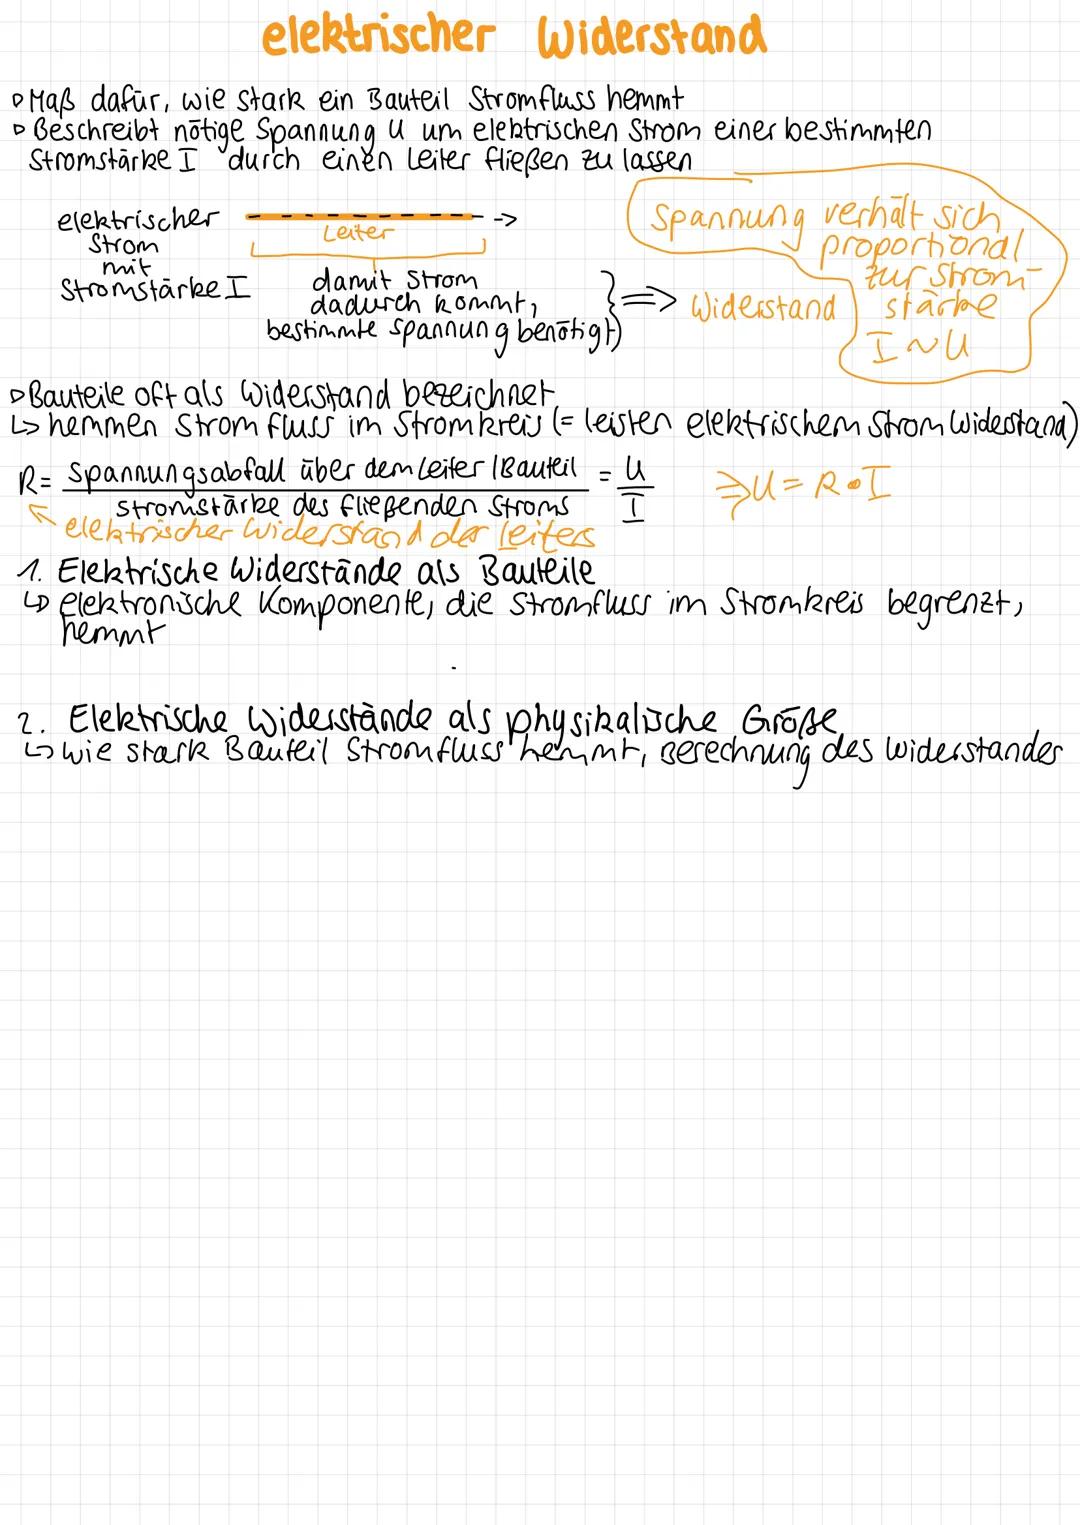 elektrischer Widerstand
▹ Maß dafür, wie stark ein Bauteil Stromfluss hemmt
▹ Beschreibt nötige Spannung U um elektrischen Strom einer bestimmten
Stromstärke I durch einen Leiter fließen zu lassen
elektrischer
Strom
mit
Stromstärke I
Leiter
damit Strom
dadurch kommt,
bestimmte Spannung benötigt
} => Widerstand
Spannung verhält sich
proportional
zur Strom-
stärke
I ~ U
▹ Bauteile oft als Widerstand bezeichnet
↳ hemmen Stromfluss im Stromkreis (= leisten elektrischem Strom Widerstand)
R = Spannungsabfall über dem Leiter / Bauteil = U
Stromstärke des fließenden Stroms I
=> U = R • I
elektrischer Widerstand der Leiters
1. Elektrische Widerstände als Bauteile
↳ elektronische Komponente, die Stromfluss im Stromkreis begrenzt,
hemmt
2. Elektrische Widerstände als physikalische Größe
↳ wie stark Bauteil Stromfluss hemmt, Berechnung des Widerstandes